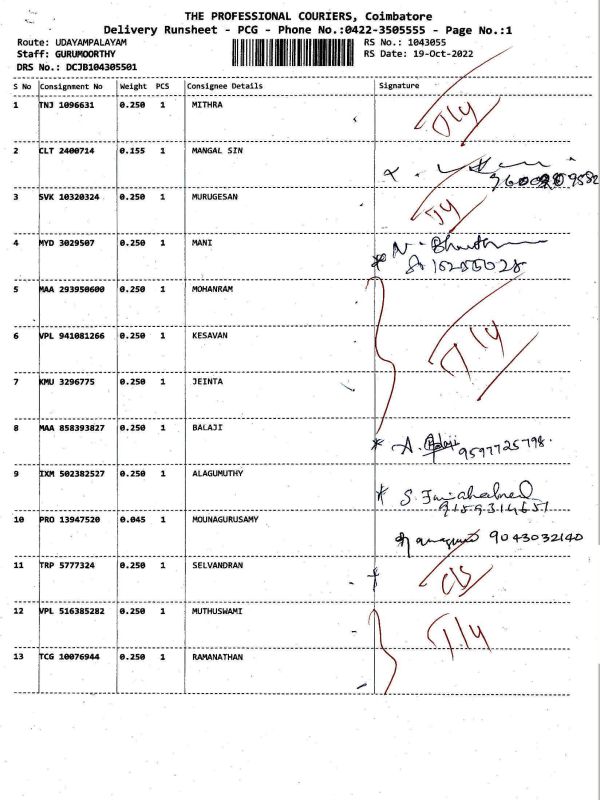 THE PROFESSIONAL COURIERS, Coimbatore
Delivery Runsheet - PCG - Phone No.:0422-3505555 - Page No.:1
Route: UDAYAMPALAYAM
RS No.: 1043055
Staff: GURUMOORTHY
RS Date: 19-Oct-2022
DRS No.: DCJB104305501
S No Consignment No Weight PCS Consignee Details Signature
1 TNJ 1096631 0.250 1 MITHRA
2 CLT 2400714 0.155 1 MANGAL SIN
3 SVK 10320324 0.250 1 MURUGESAN
4 MYD 3029507 0.250 1 MANI
5 MAA 293950600 0.250 1 MOHANRAM
6 VPL 941081266 0.250 1 KESAVAN
7 KMU 3296775 0.250 1 JEINTA
8 MAA 858393827 0.250 1 BALAJI A. Balaji
9597725798.
9 IXM 502382527 0.250 1 ALAGUMUTHY
9159314651
10 PRO 13947520 0.045 1 MOUNAGURUSAMY 9043032140
11 TRP 5777324 0.250 1 SELVANDRAN
12 VPL 516385282 0.250 1 MUTHUSWAMI
13 TCG 10076944 0.250 1 RAMANATHAN